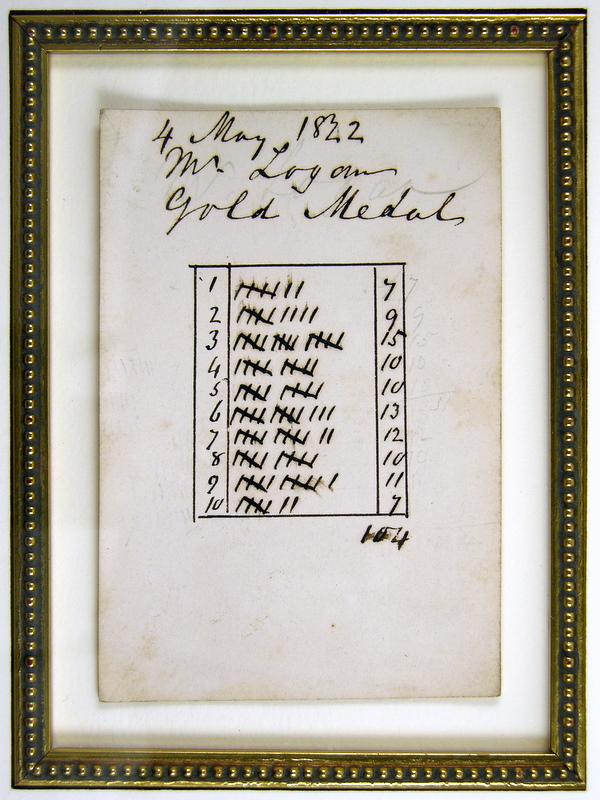 4 May 1822
Mr. Logan
Gold Medal
1 7
2 9
3 15
4 10
5 10
6 13
7 12
8 10
9 11
10 7
104